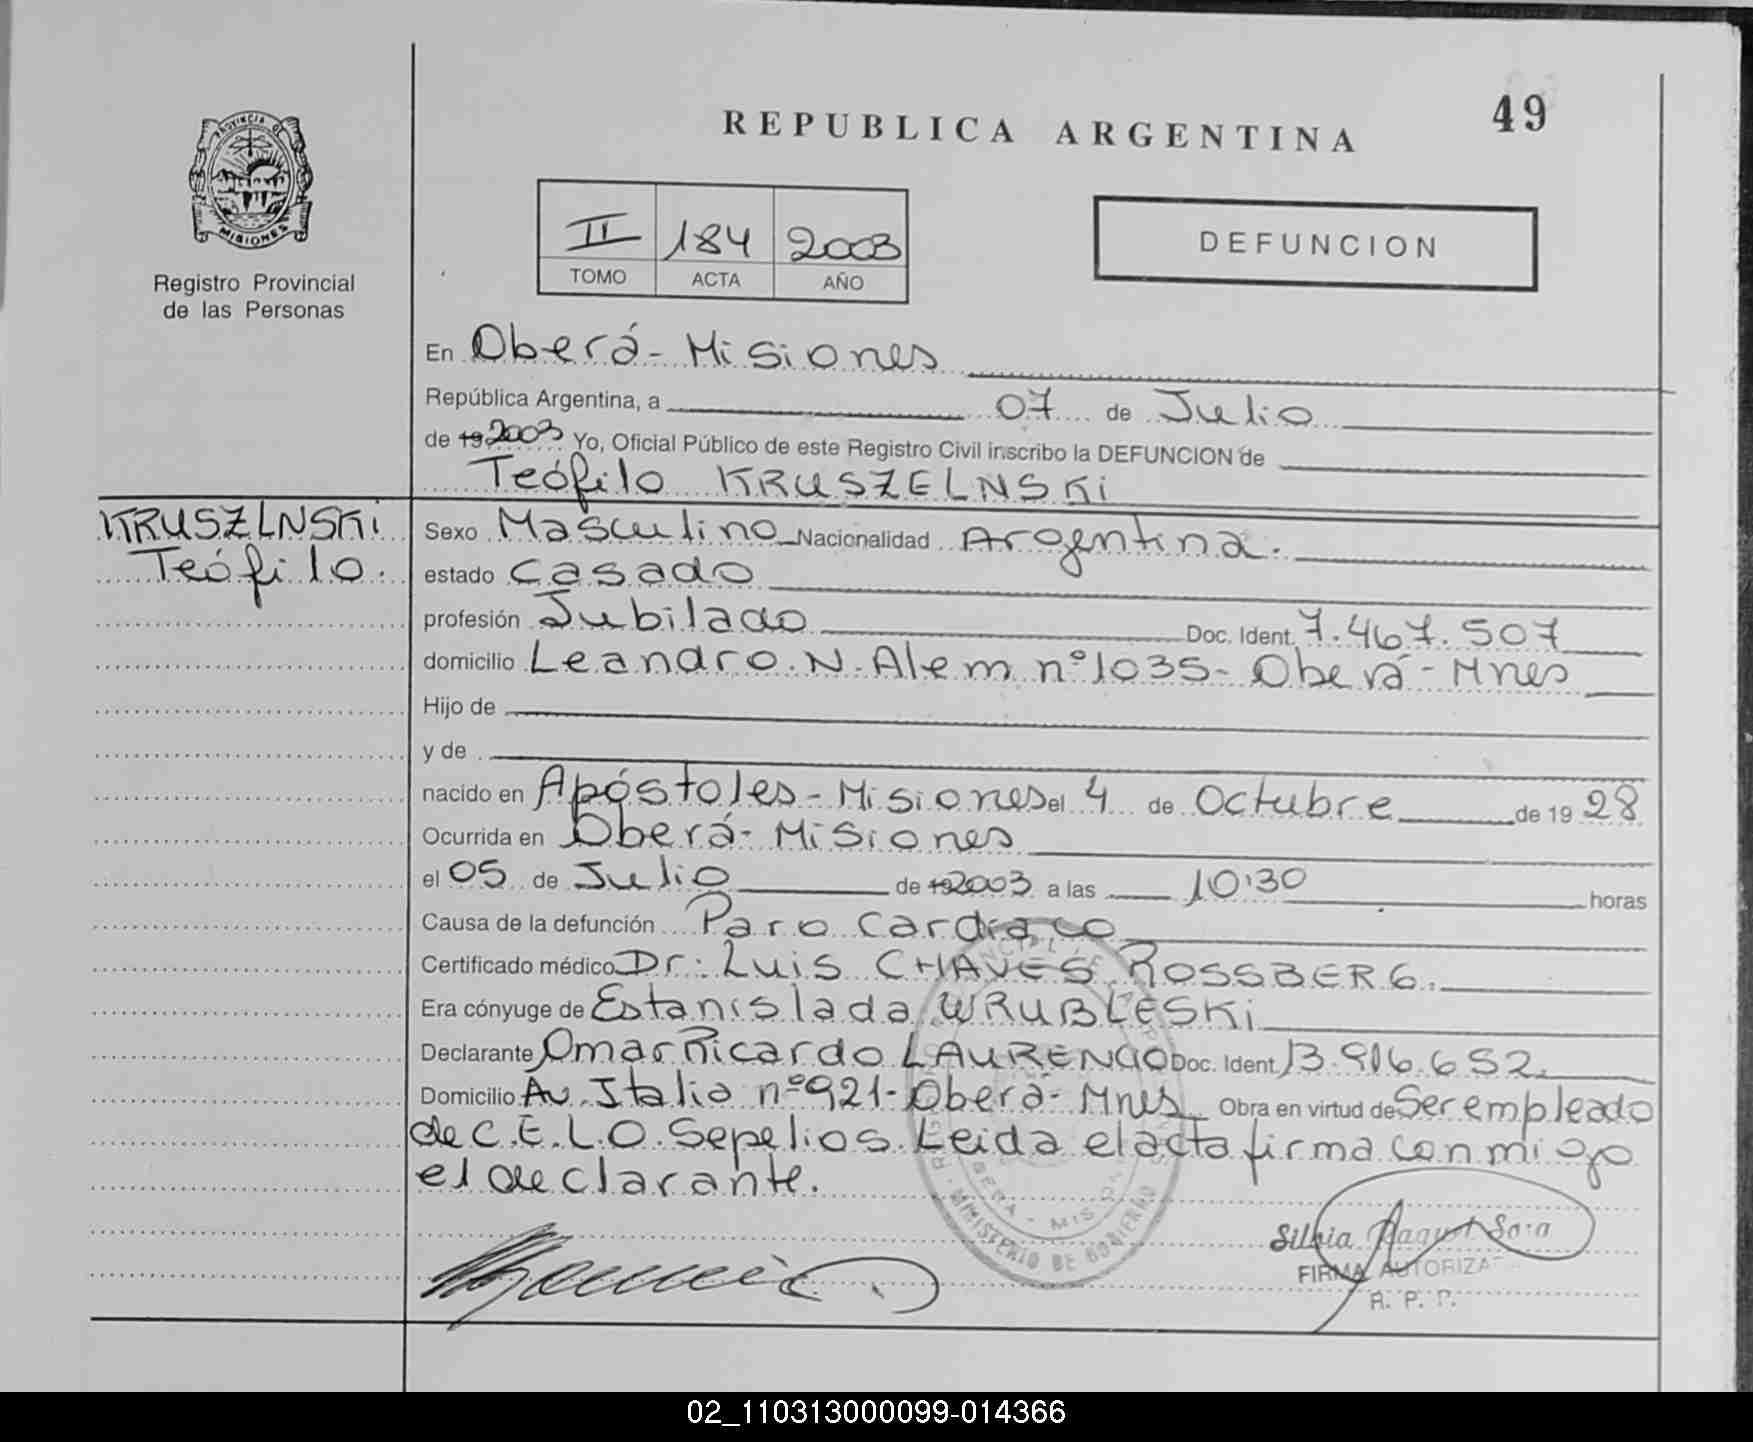 49
REPUBLICA ARGENTINA
PROVINCIA DE
MISIONES
Registro Provincial
de las Personas
II 184 2003
TOMO ACTA AÑO
DEFUNCION
En Oberá - Misiones
República Argentina, a 07 de Julio
de 19 2003 Yo, Oficial Público de este Registro Civil inscribo la DEFUNCION de
Teófilo KRUSZELNSKi
KRUSZLNSKi
Teófilo.
Sexo Masculino Nacionalidad Argentina.
estado Casado
profesión Jubilado Doc. Ident. 7.467.507
domicilio Leandro. N. Alem nº 1035 - Oberá - Mnes
Hijo de
y de
nacido en Apóstoles - Misiones el 4 de Octubre de 19 28
Ocurrida en Oberá - Misiones
el 05 de Julio de 19 2003 a las 10:30 horas
Causa de la defunción Paro Cardíaco
Certificado médico Dr: Luis CHAVES ROSSBERG.
Era cónyuge de Estanislada WRUBLESKi
Declarante Omar Ricardo LAURENCIO Doc. Ident. 13.916.652.
Domicilio Av. Italia nº 921 - Oberá - Mnes Obra en virtud de Ser empleado
de C.E.L.O. Sepelios. Leida el acta firma con mi go
el declarante.
MINISTERIO DE GOBIERNO
Silvia Raquel Sosa
FIRMA AUTORIZA
R. P. P.
02_110313000099-014366